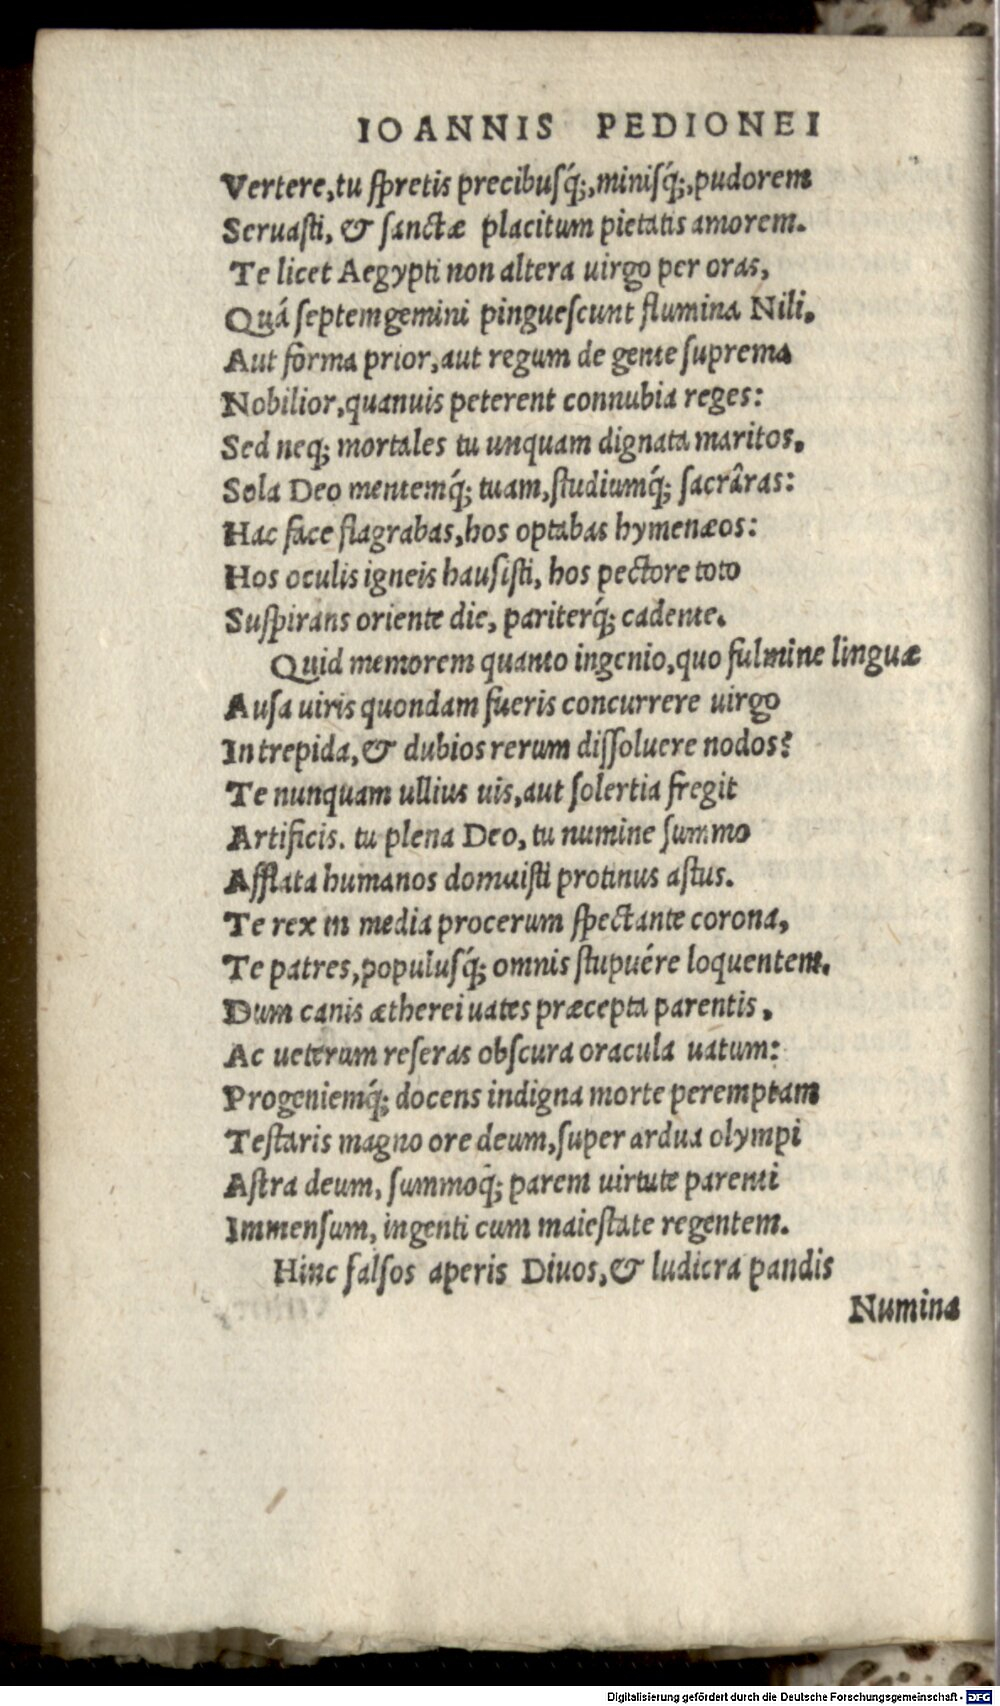 IOANNIS PEDIONEI
Vertere, tu spretis precibusq́;, minisq́;, pudorem
Seruasti, & sanctæ placitum pietatis amorem.
Te licet Aegypti non altera uirgo per oras,
Quá septemgemini pinguescunt flumina Nili.
Aut forma prior, aut regum de gente suprema
Nobilior, quanuis peterent connubia reges:
Sed neq; mortales tu unquam dignata maritos.
Sola Deo mentemq́; tuam, studiumq́; sacrâras:
Hac face flagrabas, hos optabas hymenæos:
Hos oculis igneis hausisti, hos pectore toto
Suspirans oriente die, pariterq́; cadente.
Quid memorem quanto ingenio, quo fulmine linguæ
Ausa uiris quondam fueris concurrere uirgo
Intrepida, & dubios rerum dissoluere nodos?
Te nunquam ullius uis, aut solertia fregit
Artificis. tu plena Deo, tu numine summo
Afflata humanos domuisti protinus astus.
Te rex in media procerum spectante corona,
Te patres, populusq́; omnis stupuére loquentem.
Dum canis ætherei uates præcepta parentis,
Ac ueterum reseras obscura oracula uatum:
Progeniemq́; docens indigna morte peremptam
Testaris magno ore deum, super ardua olympi
Astra deum, summoq́; parem uirtute parenti
Immensum, ingenti cum maiestate regentem.
Hinc falsos aperis Diuos, & ludicra pandis
Numina
Digitalisierung gefördert durch die Deutsche Forschungsgemeinschaft - DFG